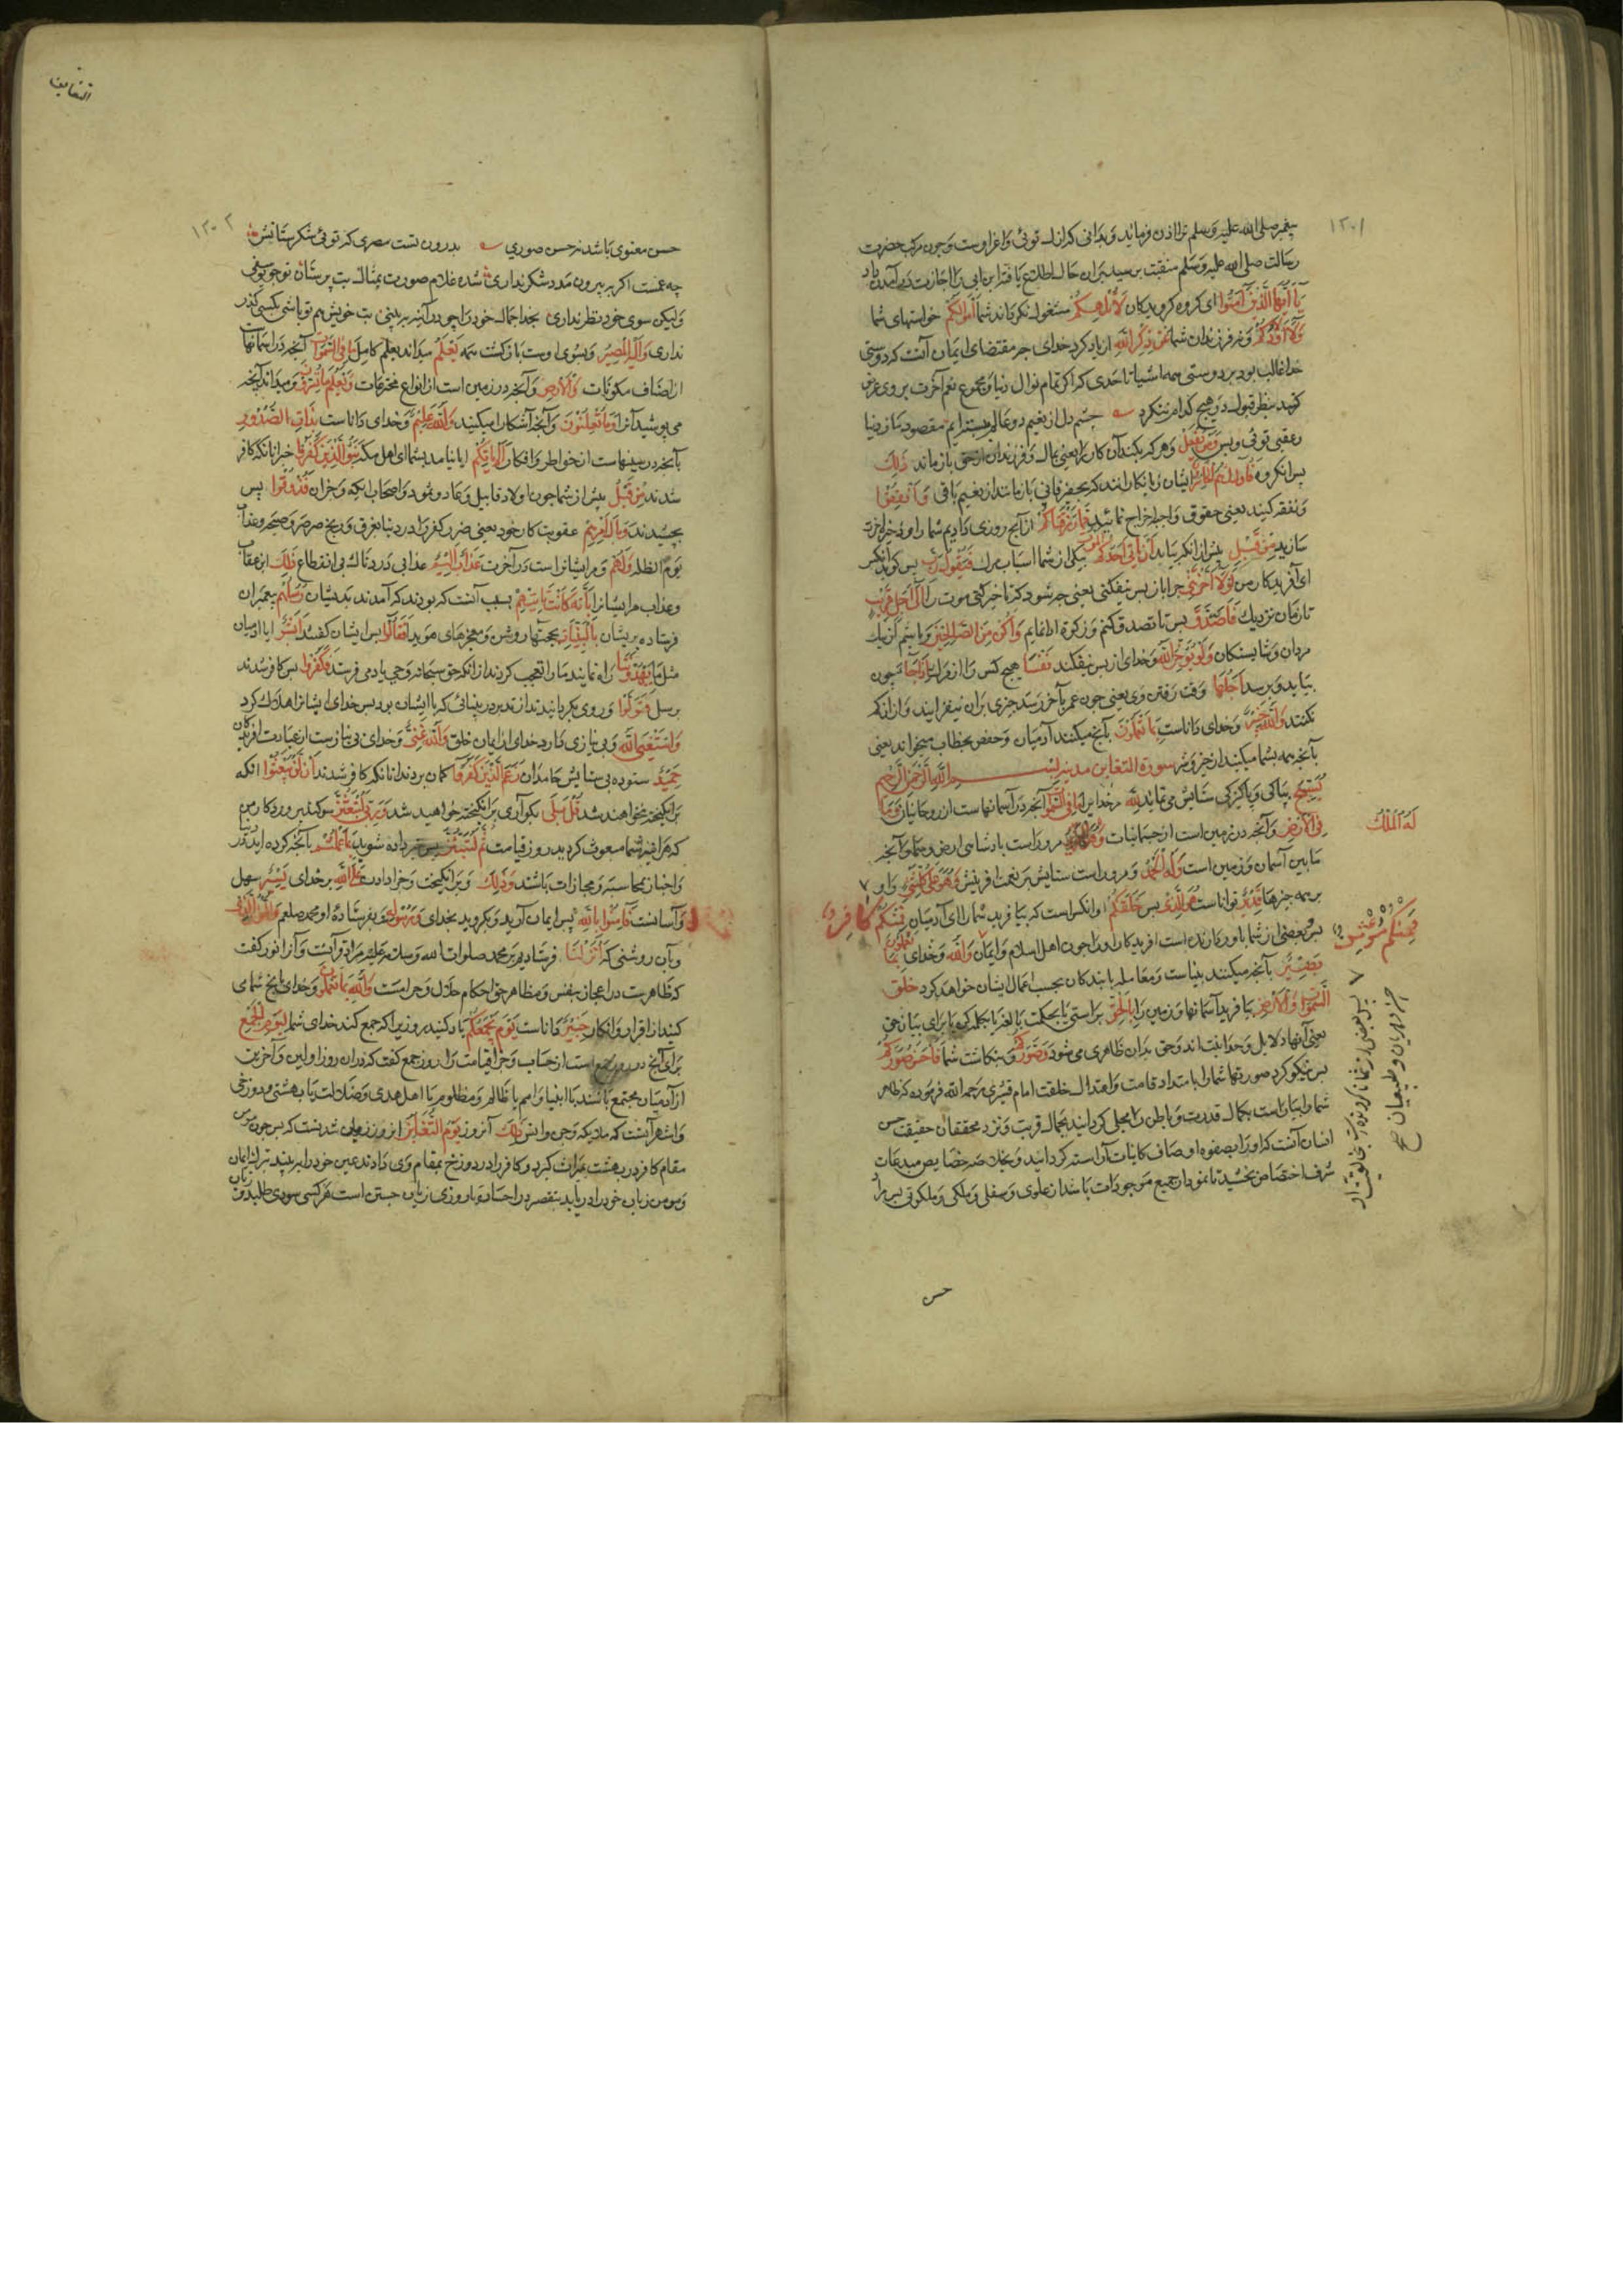 ۱۳۰۱
پیغمبر صلی الله علیه وسلم ترا اذن فرماید و بدانی که اذل توئی و اعز اوست و چون مرکب حضرت
رسالت صلی الله علیه وسلم بران حال اطلاع یافت ابن ابی را اجازت در آمدن داد
یا ایها الذین آمنوا ای گروه گرویدگان لا تلهکم مشغول نگرداند شما را اموالکم خواستهای شما
ولا اولادکم و نه فرزندان شما عن ذکر الله از یاد کرد خدای چه مقتضای ایمان آنست که دوستی
خدا غالب بود بر دوستی همه اشیا تا حدی که اگر تمام نوال دنیا و مجموع نعم آخرت بر وی عرض
کنند بنظر قبول در هیچ کدام ننگرد چشم دل از نعیم دو عالم ببسته ایم مقصود ما ز دنیا
و عقبی توئی و بس ومن یفعل و هر که بکند آن کار را یعنی بمال و فرزندان از حق باز ماند ذلک
پس آنگروه فاولئک هم الخاسرون ایشان زیانکارانند که بچیز فانی باز مانند از نعیم باقی وانفقوا
و نفقه کنید یعنی حقوق واجبه اخراج نمائید مما رزقناکم از آنچه روزی دادیم شما را و ذخیره آخرت
سازید من قبل پیش از آنکه بیاید ان یاتی احدکم الموت یکی از شما اسباب مرگ فیقول رب پس گوید آنکس
ای آفریدگار من لولا اخرتنی چرا باز پس نیفکنی یعنی چه شود که تاخیر کنی موت را الی اجل قریب
تا زمان نزدیک فاصدق پس تا تصدق کنم و زکوة ادا نمایم واکن من الصالحین و باشم از نیک
مردان و شایستگان ولن یوخر الله و خدای باز پس نیفکند نفسا هیچ کس را از مرگ اذا جاء چون
بیاید و برسد اجلها وقت رفتن وی یعنی چون عمر بآخر رسد چیزی بران نیفزایند و ازان کم
نکنند والله خبیر و خدای داناست بما تعملون بآنچه میکنند آدمیان و حفص بخطاب میخواند یعنی
بآنچه همه شما میکنید از خیر و شر سورة التغابن مدنیه بسم الله الرحمن الرحیم
یسبح بپاکی و پاکیزگی ستایش می نماید لله مر خدای را ما فی السموات آنچه در آسمانهاست از روحانیان وما
فی الارض و آنچه در زمین است از جسمانیات مر اوراست پادشاهی ارض و سما و آنچه
له الملک
مابین آسمان و زمین است وله الحمد و مر اوراست ستایش بر نعمت آفرینش وهو علی کل شیء و او
بر همه چیزها قدیر تواناست هو الذی خلقکم او آنکس است که بیافرید شما را ای آدمیان فمنکم کافر
فمنکم مومن
پس بعضی از شما باور دارنده است آفریدگار او را چون اهل اسلام و ایمان والله و خدای بما تعملون
بصیر بآنچه میکنند بیناست و معامله با بندگان بحسب اعمال ایشان خواهد کرد خلق
السموات والارض بیافرید آسمانها و زمین را بالحق براستی یا بحکمت یا برای بیان حق
یعنی آنها دلایل وحدانیت اند و حق بدان ظاهر می شود وصورکم و بنگاشت شما را فاحسن صورکم
پس نیکو کرد صورتهای شما را بامتداد قامت و اعتدال خلقت امام قشیری رحمه الله فرموده که ظاهر
شما را بیاراست بکمال قدرت و باطن را مجلی گردانید بجمال قربت و نزد محققان حقیقت حسن
انسان آنست که او را بصفوه اوصاف کاینات آراسته گردانید و بخلاصه خصایص مبدعات
شرف اختصاص بخشید تا نمودار جمیع موجودات باشد از علوی و سفلی و ملکی و ملکوتی پس مراد
حسن
التغابن
۱۳۰۲
حسن معنوی باشد نه حسن صوری بدرون تست مصری که توئی شکر ستانش
چه غمست اگر ز بیرون مدد شکر نداری شده غلام صورت بمثال بت پرستان تو چو یوسفی
ولیکن سوی خود نظر نداری بخدا جمال خود را چو در آینه ببینی بت خویش هم تو باشی بکسی گذر
نداری والیه المصیر و بسوی اوست بازگشت همه یعلم میداند بعلم کامل ما فی السموات آنچه در آسمانها
از اصناف مکونات والارض و آنچه در زمین است از انواع مخترعات ویعلم ما تسرون و میداند آنچه
می پوشید آنرا وما تعلنون و آنچه آشکارا میکنید والله علیم و خدای داناست بذات الصدور
بآنچه در سینهاست از خواطر و افکار الم یاتکم ایا نیامد بشما ای اهل مکه نبؤ الذین کفروا خبر آنانکه کافر
شدند من قبل پیش از شما چون اولاد قابیل و عاد و ثمود و اصحاب ایکه و جز آن فذاقوا پس
بچشیدند وبال امرهم عقوبت کار خود یعنی ضرر کفر را در دنیا بغرق و ریح صرصر و صیحه و عذاب
یوم الظله ولهم و مر ایشانراست در آخرت عذاب الیم عذابی دردناک بی انقطاع ذلک این عقاب
و عذاب مر ایشانرا بانه کانت تاتیهم بسبب آنست که بودند که آمدند بدیشان رسلهم پیغمبران
فرستاده بریشان بالبینات بحجتهای روشن و معجزهای موید فقالوا پس ایشان گفتند ابشر ایا آدمیان
مثل ما یهدوننا راه نمایند ما را تعجب کردند ازانکه حق سبحانه وحی بآدمی فرستد فکفروا پس کافر شدند
برسل وتولوا و روی بگردانیدند از تدبر در بیناتی که با ایشان بود پس خدای ایشانرا هلاک کرد
واستغنی الله و بی نیازی دارد خدای از ایمان خلق والله غنی و خدای بی نیاز ست از عبارت آفریدگان
حمید ستوده بی ستایش حامدان زعم الذین کفروا گمان بردند آنانکه کافر شدند ان لن یبعثوا انکه
برانگیخته نخواهند شد قل بلی بگو آری برانگیخته خواهید شد وربی لتبعثن سوگند بپروردگار من
که هر آینه شما مبعوث گردید روز قیامت ثم لتنبؤن پس خبر داده شوید بما عملتم بآنچه کرده اید
و اخبار محاسبه و مجازات باشد وذلک و برانگیختن و جزا دادن علی الله بر خدای یسیر سهل
و آسانست فآمنوا بالله پس ایمان آرید و بگروید بخدای ورسوله و بفرستاده او محمد صلعم والنور الذی
و بآن روشنی که انزلنا فرستادیم بر محمد صلوات الله وسلامه علیه مراد قرآنست و آنرا نور گفت
که ظاهرست در اعجاز بنفس و مظاهر حق احکام حلال و حرامست والله بما تعملون و خدای بآنچه شما می
کنید از اقرار و انکار خبیر داناست یوم یجمعکم یاد کنید روزیرا که جمع کند خدای شما را لیوم الجمع
برای آنچه در روز جمع است از حساب و جزا قیامت را روز جمع گفت که دران روز اولین و آخرین
از آدمیان مجتمع باشند یا انبیا و امم یا ظالم و مظلوم یا اهل هدی و ضلالت یا بهشتی و دوزخی
و اشهر آنست که ملایکه و جن و انس ذلک آنروز یوم التغابن
مقام کافر در بهشت بمیراث گیرد و کافر را در دوزخ بمقام وی دادند غبن خود را ببیند
و مومن زیان خود را دریابد بتقصیر در احسان